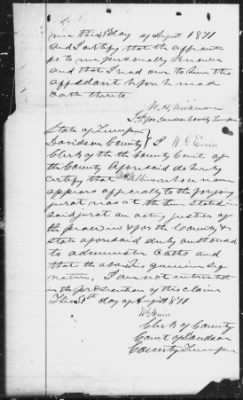 me this 8th day of August 1871
and I certify that the affiant
is to me personally known
and that I read over to him this
affidavit before he made
oath thereto
W. H. Wilkinson
J.P. for Davidson County Tennessee
State of Tennessee
Davidson County } I W G Ewin
Clerk of the County Court of
the County aforesaid do hereby
certify that whose name
appears officially to the foregoing
jurat was at the time stated in
said jurat an acting justice of
the peace in & for the County &
state aforesaid duly authorized
to administer oaths and
that the above is genuine sig
nature, I am not interested
in the prosecution of this claim
This 8th day of August 1871
W G Ewin
Clerk of County
Court of Davidson
County Tennessee